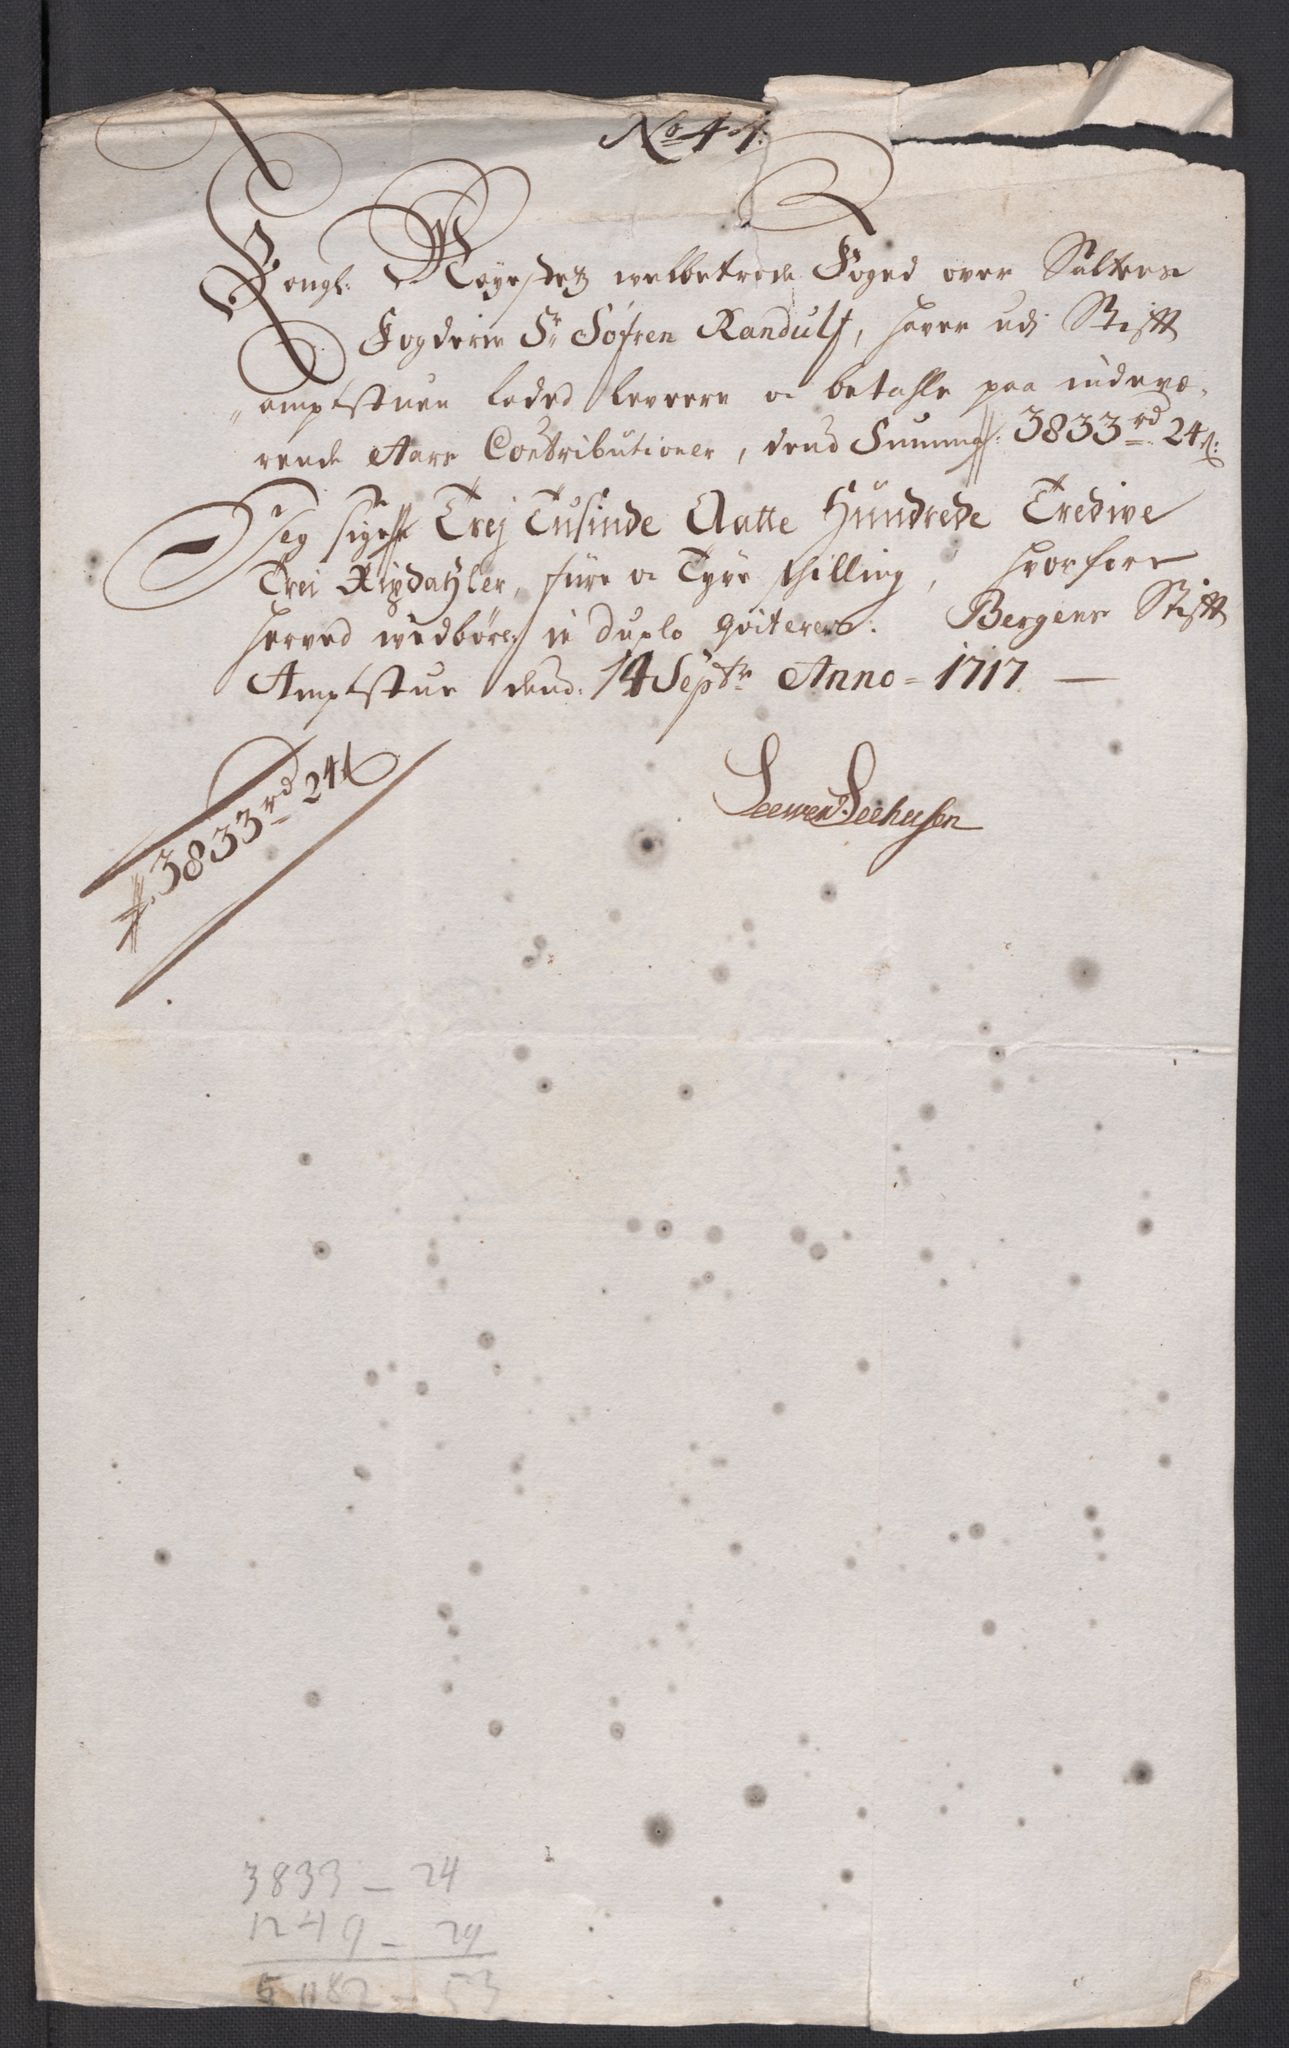 No 41.
Kongl: Mayestetz welbetrode Foged over Saltens
Fogderie Sr Søfren Randulf, haver udj Stift
amptstuen laded levere og betahle paa indevæ-
rende Aars Contributioner, dend Summa: 3833 rd 24 s:
Jeg siger Trej Tusinde Aatte Hundrede Tredive
Trei Rixdahler, fiire og Tyve skilling, hvorfore
herved wedbørl: in duplo qviterer. Bergens Stift
Amptstue dend: 14 Septr Anno = 1717
3833 rd 24 s
Leewen Seehusen
3833 - 24
1249 - 29
5082 - 53